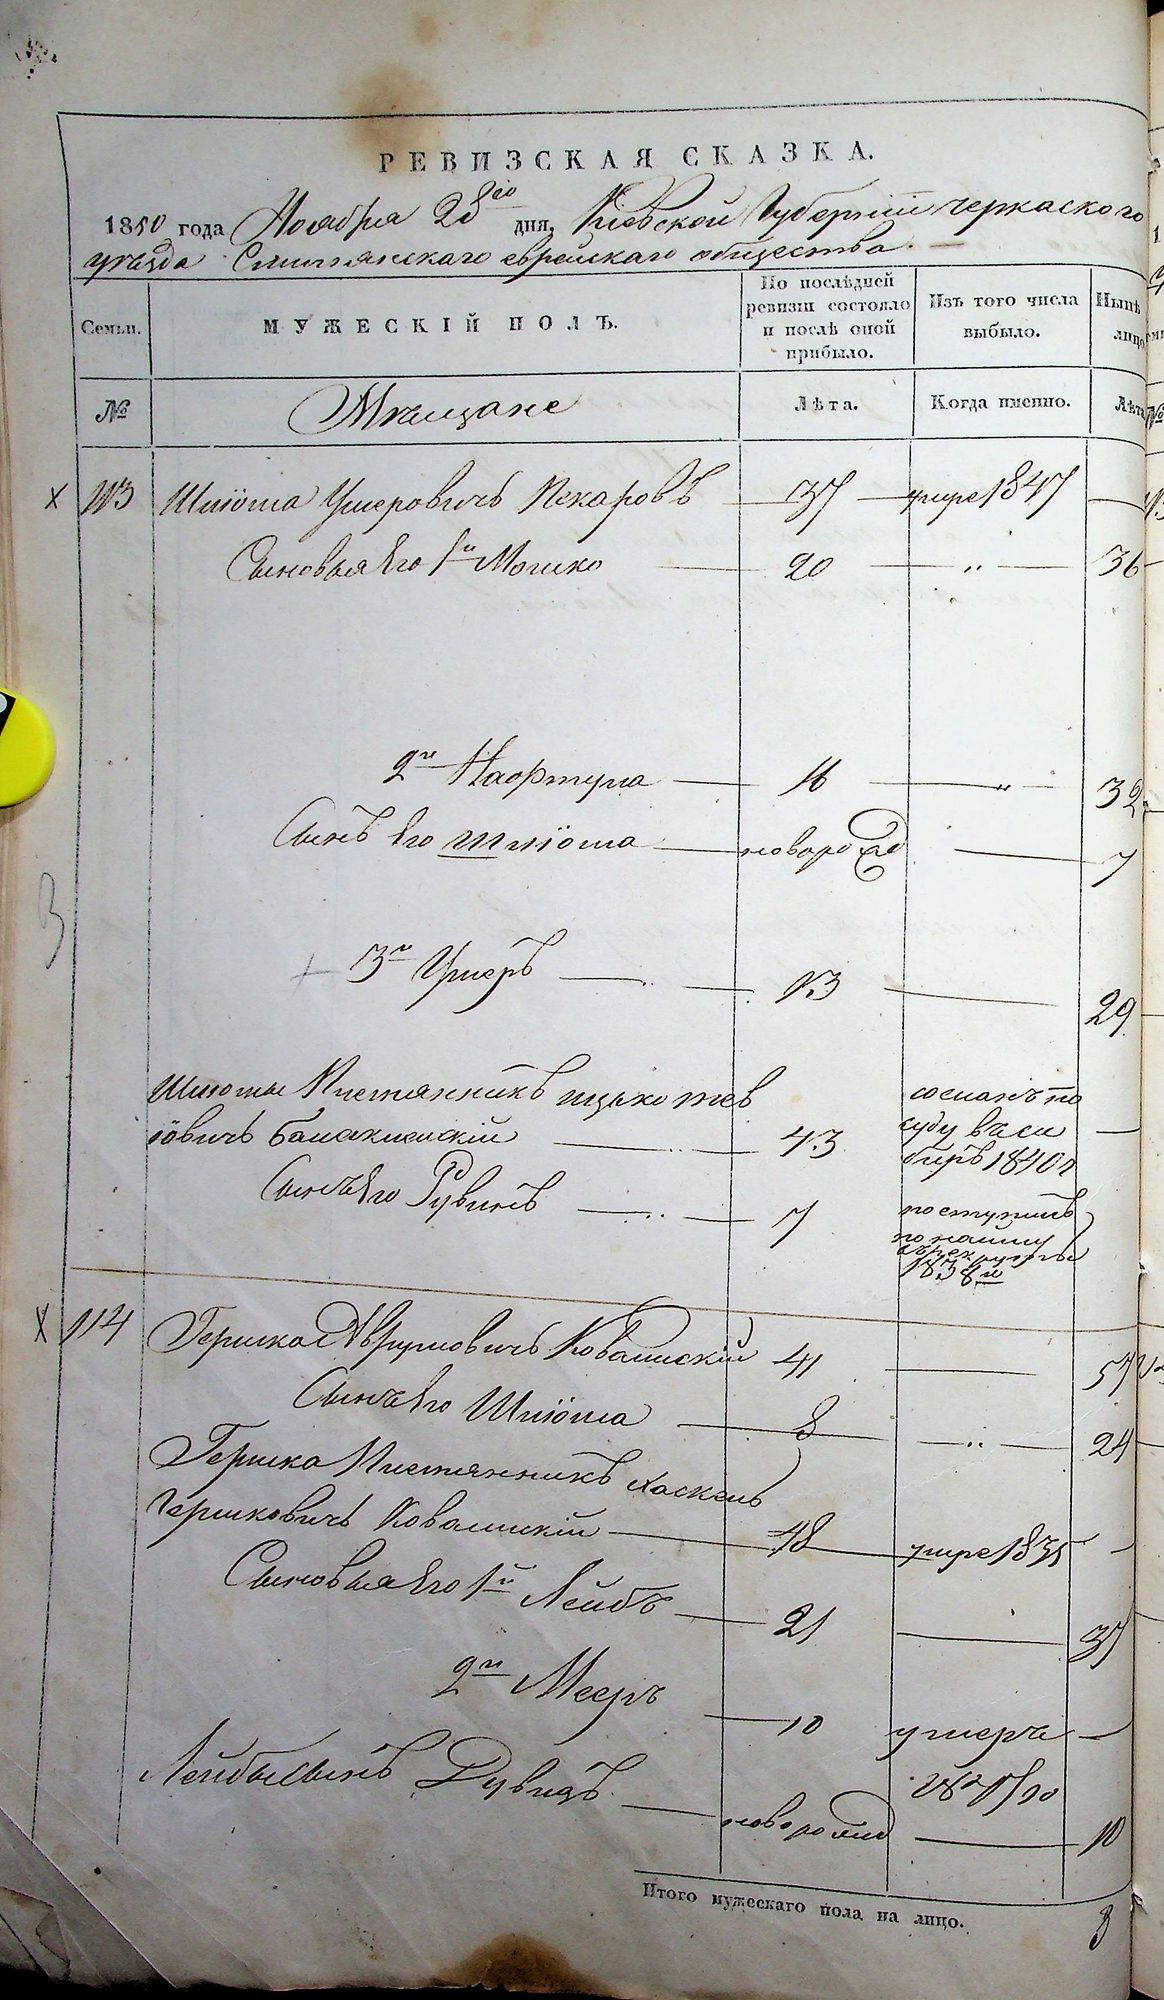 РЕВИЗСКАЯ СКАЗКА.
1850 года Ноября 28го дня, Кіевской Губерніи черкаского
уѣзда Смилянскаго еврейскаго общества.
Семьи. МУЖЕСКІЙ ПОЛЪ. По послѣдней ревизіи состояло и послѣ оной прибыло. Изъ того числа выбыло. Нынѣ лицо
№ Мѣщане Лѣта. Когда именно. Лѣта
х 113 Шліома Умеровичъ Пекаровъ 37 умре 1847
Сыновья Его 1й Мошко 20 " 36
2й 16 " 32
Сынъ Его Шліома новорожд 7
3й Умеръ 13 29
Шліомы Племянникъ ицько лев
іовичъ 43 сосланъ по суду въ си биръ 1840г
Сынъ Его Рувинъ 7 поступилъ по найму въ рекруты 1838го
х 114 Гершко Аврумовичъ Ковалискій 41 57
Сынъ Его Шліома 8 " 24
Гершка Племянникъ Хаскель
Гершковичъ Ковалискій 48 умре 1835
Сыновья Его 1й Лейбъ 21 37
2й Мееръ 10 умеръ
Лейбы Сынъ Дувидъ новорожд 10
Итого мужескаго пола на лицо. 8
3